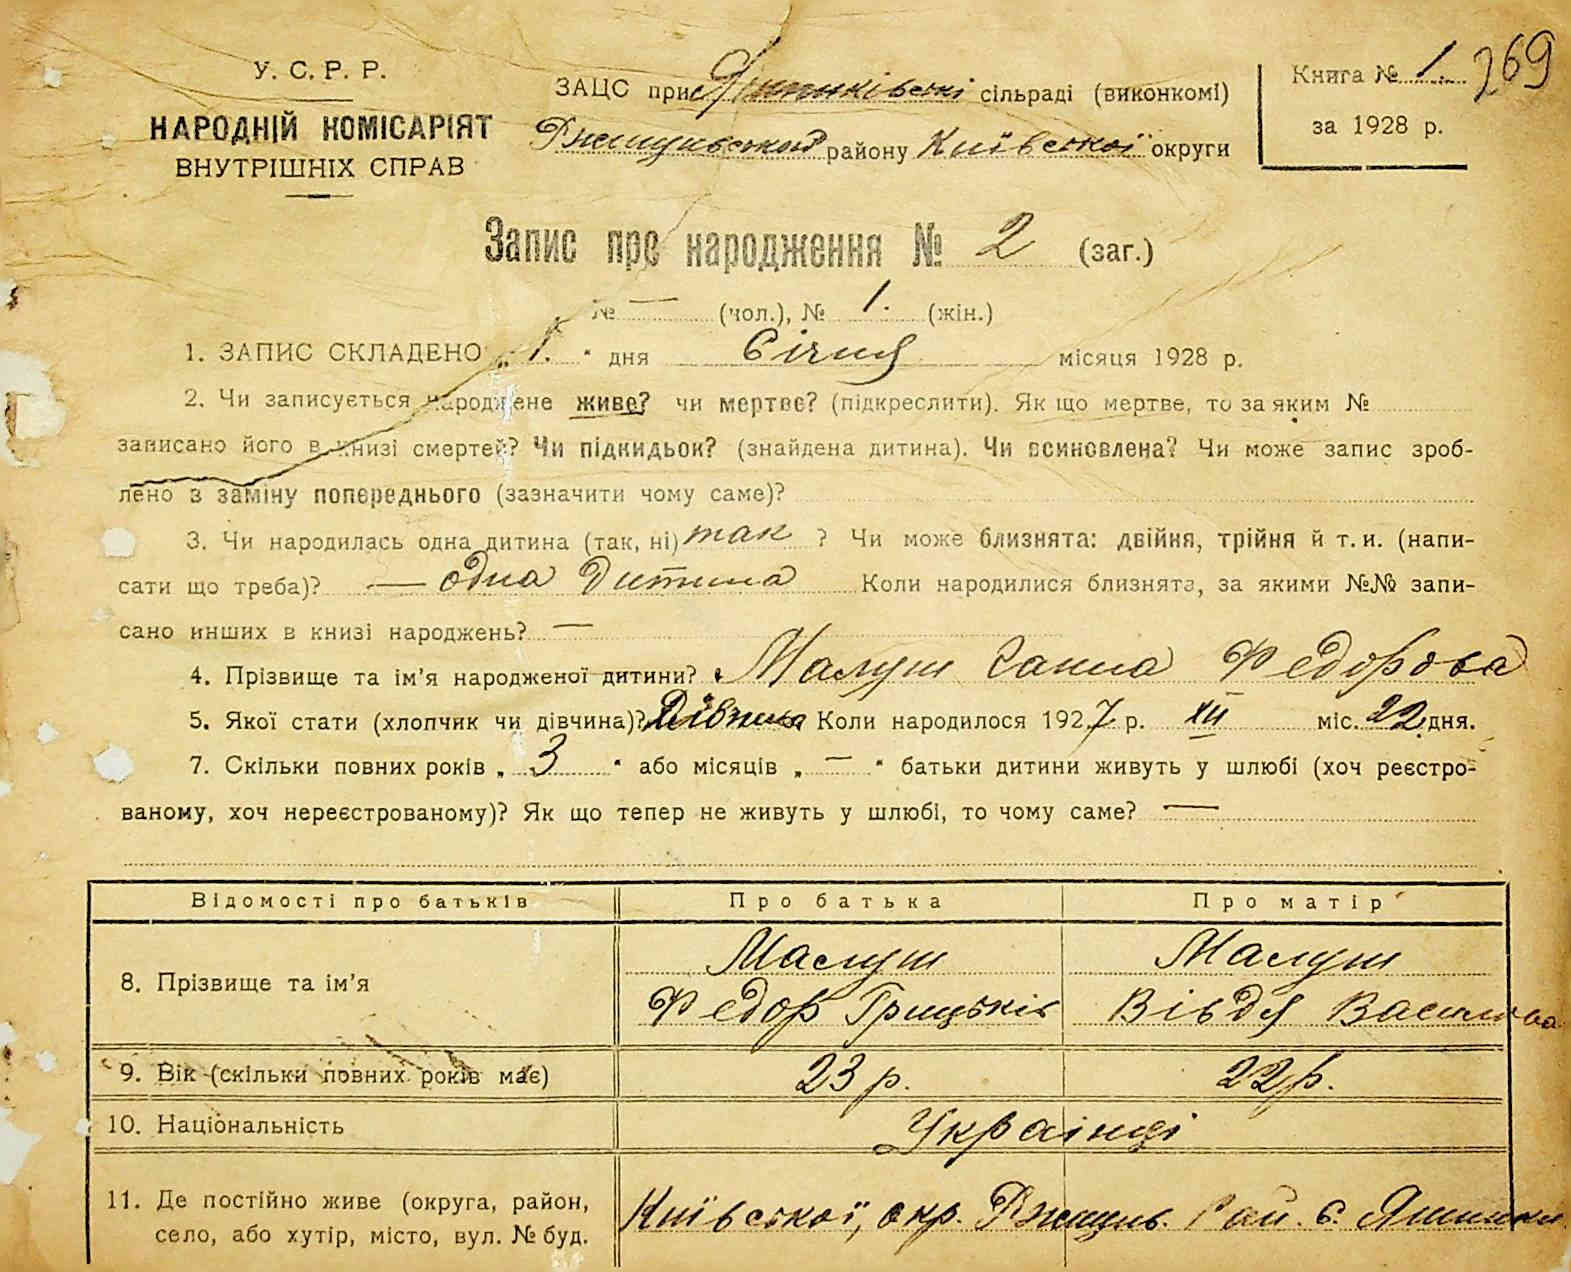 У. С. Р. Р.
НАРОДНІЙ КОМІСАРІЯТ
ВНУТРІШНІХ СПРАВ
ЗАЦС при сільраді (виконкомі)
району Київської округи
Книга № 1. 269
за 1928 р.
Запис про народження № 2 (заг.)
№ — (чол.), № 1. (жін.)
1. ЗАПИС СКЛАДЕНО „ 1. “ дня Січня місяця 1928 р.
2. Чи записується народжене живе? чи мертве? (підкреслити). Як що мертве, то за яким №
записано його в книзі смертей? Чи підкидьок? (знайдена дитина). Чи всиновлена? Чи може запис зроб-
лено в заміну попереднього (зазначити чому саме)?
3. Чи народилась одна дитина (так, ні) так ? Чи може близнята: двійня, трійня й т. и. (напи-
сати що треба)? — одна дитина Коли народилися близнята, за якими №№ запи-
сано инших в книзі народжень? —
4. Прізвище та ім'я народженої дитини? Малуш Ганна Федорова
5. Якої стати (хлопчик чи дівчина)? Дівчина Коли народилося 1927 р. XII міс. 22 дня.
7. Скільки повних років „ 3 “ або місяців „ — “ батьки дитини живуть у шлюбі (хоч реєстро-
ваному, хоч нереєстрованому)? Як що тепер не живуть у шлюбі, то чому саме? —
Відомості про батьків Про батька Про матір
8. Прізвище та ім'я Малуш Малуш
Федор Грицьків Вівдя Василова
9. Вік (скільки повних років має) 23 р. 22 р.
10. Національність Українці
11. Де постійно живе (округа, район, Київської, окр. Ржищів. Рай. с. Яшники
село, або хутір, місто, вул. № буд.